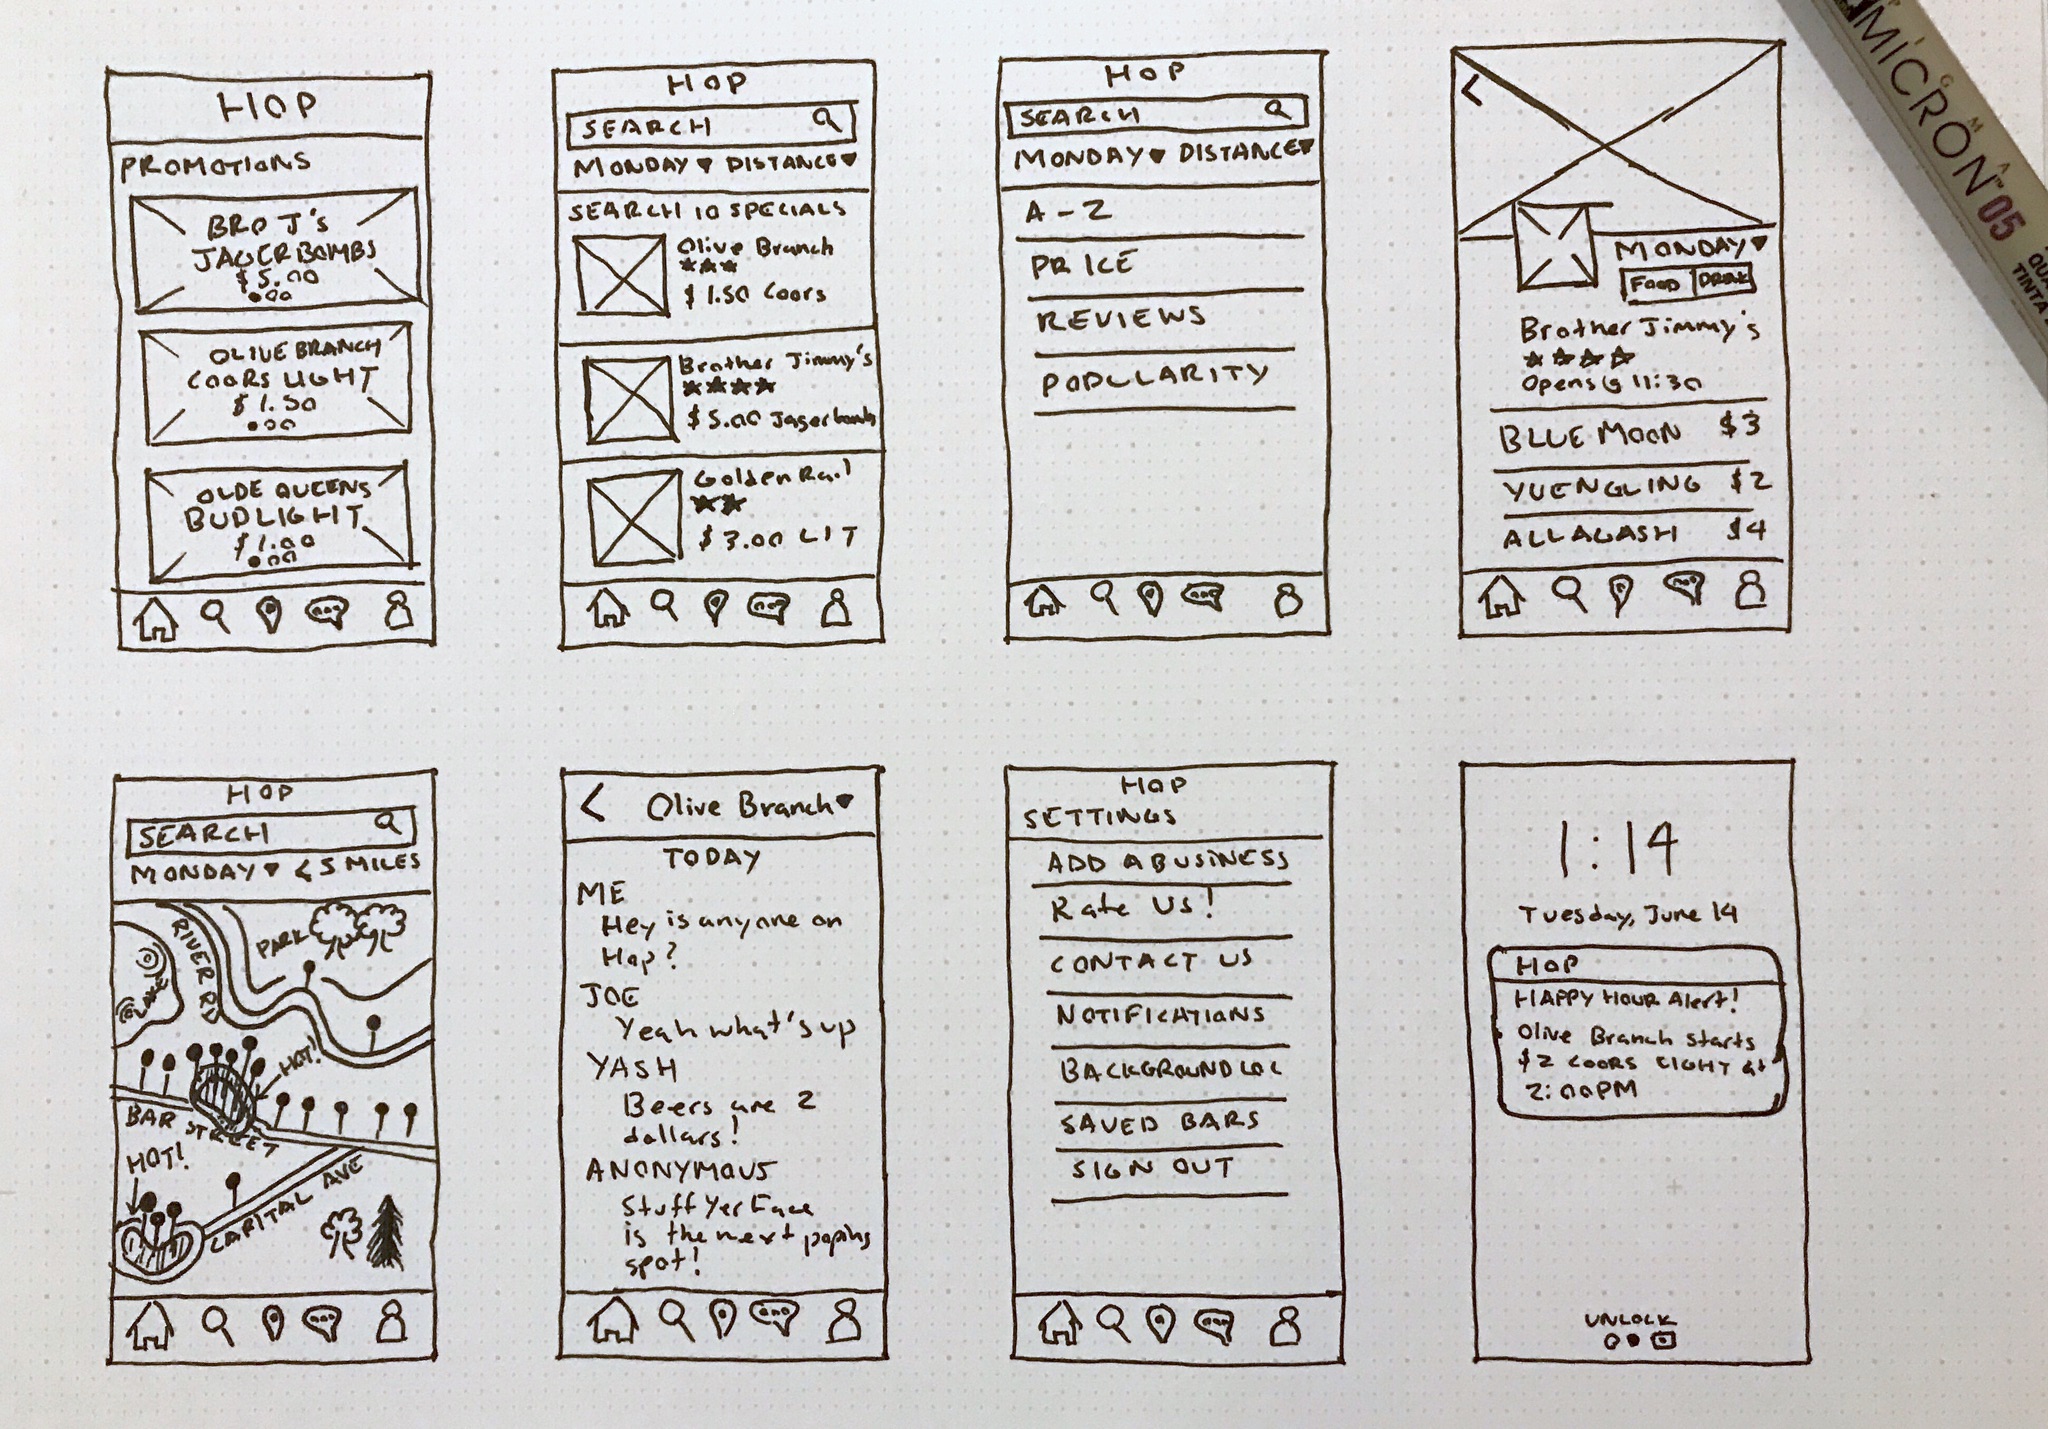 HOP
PROMOTIONS
BRO J's
JAGERBOMBS
$5.00
OLIVE BRANCH
COORS LIGHT
$1.50
OLDE QUEENS
BUDLIGHT
$1.00
HOP
SEARCH
MONDAY DISTANCE
SEARCH 10 SPECIALS
Olive Branch
$1.50 Coors
Brother Jimmy's
$5.00 Jagerbombs
Golden Rail
$3.00 LIT
HOP
SEARCH
MONDAY DISTANCE
A-Z
PRICE
REVIEWS
POPULARITY
<
MONDAY
FOOD DRINK
Brother Jimmy's
Opens @ 11:30
BLUE MOON $3
YUENGLING $2
ALLAGASH $4
MICRON 05
HOP
SEARCH
MONDAY < 5 MILES
RIVER RD
PARK
LAKE
HOT!
BAR STREET
HOT!
CAPITAL AVE
< Olive Branch
TODAY
ME
Hey is anyone on
Hop?
JOE
Yeah what's up
YASH
Beers are 2
dollars!
ANONYMOUS
Stuff Yer Face
is the next poping
spot!
HOP
SETTINGS
ADD A BUSINESS
Rate US!
CONTACT US
NOTIFICATIONS
BACKGROUND LOC
SAVED BARS
SIGN OUT
1:14
Tuesday, June 14
HOP
HAPPY HOUR Alert!
Olive Branch starts
$2 COORS LIGHT at
2:00PM
UNLOCK